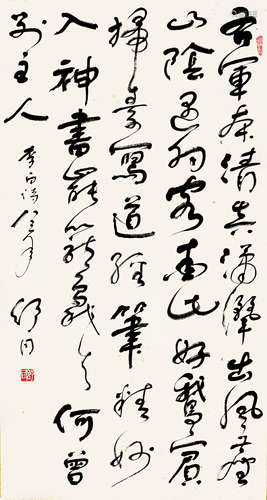 右軍本清真瀟灑出風塵
山陰遇羽客愛此好鵝賓
掃素寫道經筆精妙
入神書罷籠鵝去何曾
別主人
李白詩
舒同